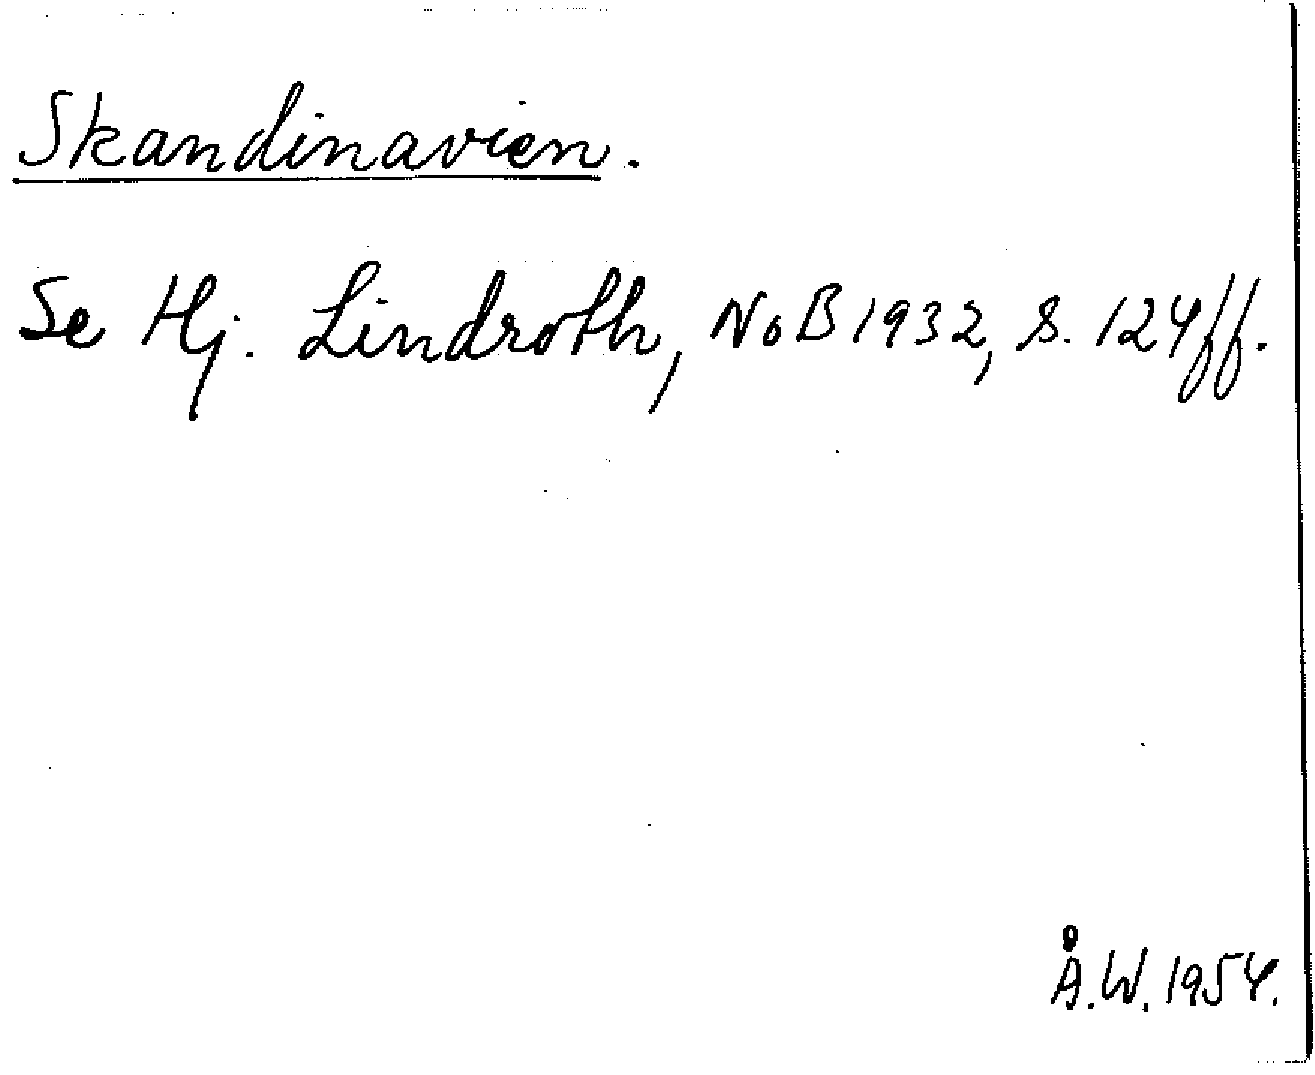 Skandinavien.
Se Hj. Lindroth, NoB 1932, s. 124ff.
Å.W. 1954.